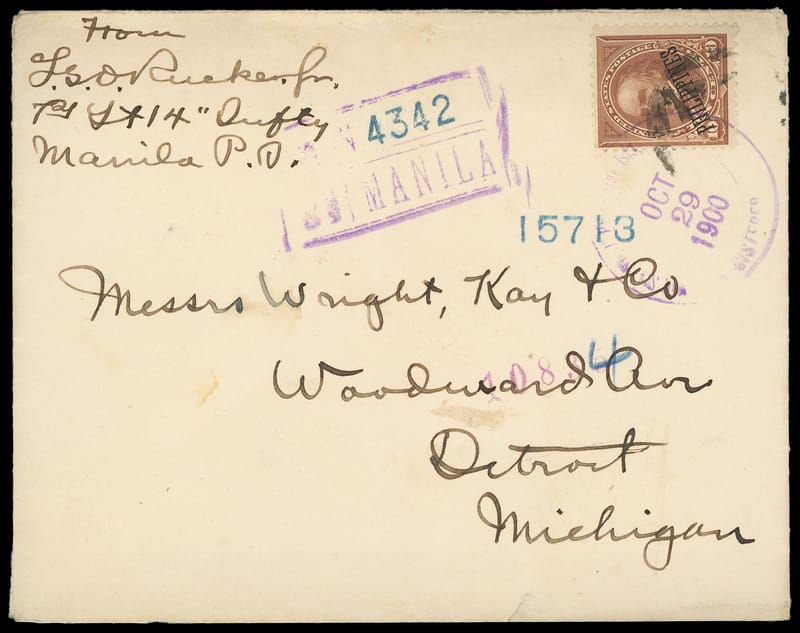 From
L.S.D. Rucker Jr.
1st Lt 14" Infty
Manila P.I.
4342
MANILA
PHILIPPINES
OCT
29
1900
15713
Messrs Wright, Kay & Co
4
Woodward Ave
Detroit
Michigan